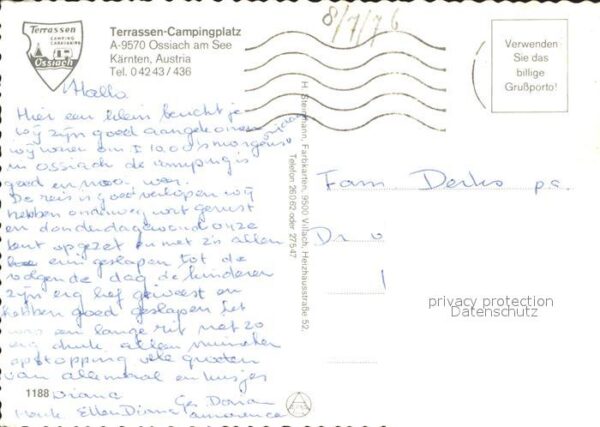 Terrassen
CAMPING
CARAVANING
Ossiach
Terrassen-Campingplatz
A-9570 Ossiach am See
Kärnten, Austria
Tel. 0 42 43 / 436
8/7/76
Verwenden
Sie das
billige
Grußporto!
Hallo
Hier een klein berichtje
wij zijn goed aangekomen
wij waren om 10.00 's morgens
in Ossiach de camping is
goed en mooi weer.
De reis is goed verlopen wij
hebben onderweg wat gerust
en donderdagavond onze
tent opgezet en met z'n allen
in geslapen tot de
volgende dag de kinderen
zijn erg lief geweest en
hebben goed geslapen het
was een lange rit met 20
erg druk alleen
opstopping vele groeten
van allemaal en kusjes
Diana
Henk Ellen Diana Ger Dorian
1188
H. Steinmann, Farbkarten, 9500 Villach, Heizhausstraße 52,
Telefon 26 0 62 oder 27 5 47
Fam Derks
privacy protection
Datenschutz